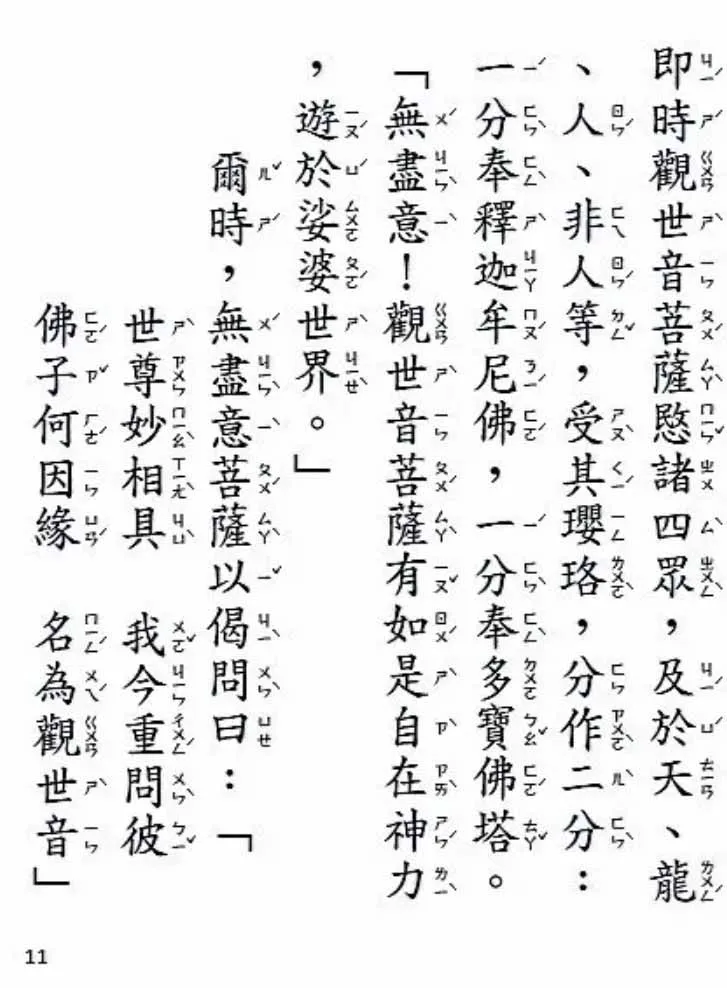 即時觀世音菩薩愍諸四眾，及於天、龍
、人、非人等，受其瓔珞，分作二分：
一分奉釋迦牟尼佛，一分奉多寶佛塔。
「無盡意！觀世音菩薩有如是自在神力
，遊於娑婆世界。」
爾時，無盡意菩薩以偈問曰：「
世尊妙相具　我今重問彼
佛子何因緣　名為觀世音」
11